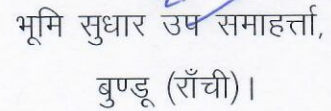 भूमि सुधार उप समाहर्त्ता,
बुण्डू (राँची)।